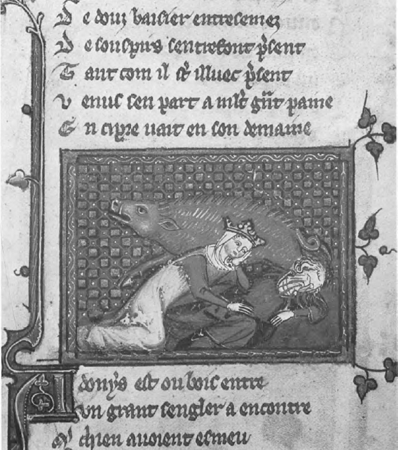 De douz baisier entresemez
De souspirs sentrefont p̃sent
Tant com il st̃ illuec p̃sent
Venus sen part a mlt̃ gñt paine
En cipre uait en son demaine
Adonys est ou bois entre
Vn grant sengler a encontre
chien auoient esmeu